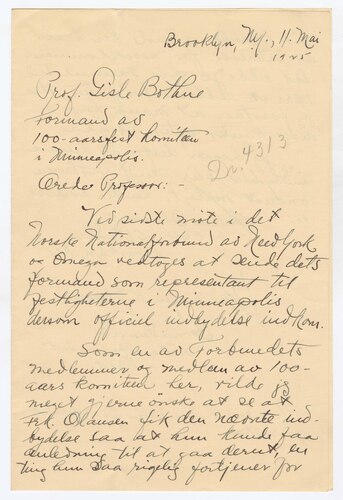 Brooklyn, Ny., 11. Mai
1925
Prof. Gisle Bothne
Formand av
100-aarsfest komiteen
i Minneapolis.
Dr. 4313
Ærede Professor: -
Ved sidste møte i det
Norske Nationalforbund av New York
og Omegn vedtoges at sende dets
formand som representant til
festligheterne i Minneapolis
dersom officiel indbydelse indkom.
Som en av Forbundets
medlemmer og medlem av 100-
aars komiteen her, vilde jeg
meget gjerne ønske at se at
Frk. Olausen fik den nævnte ind-
bydelse saa at hun kunde faa
anledning til at gaa derut, en
ting hun saa rigelig fortjener for